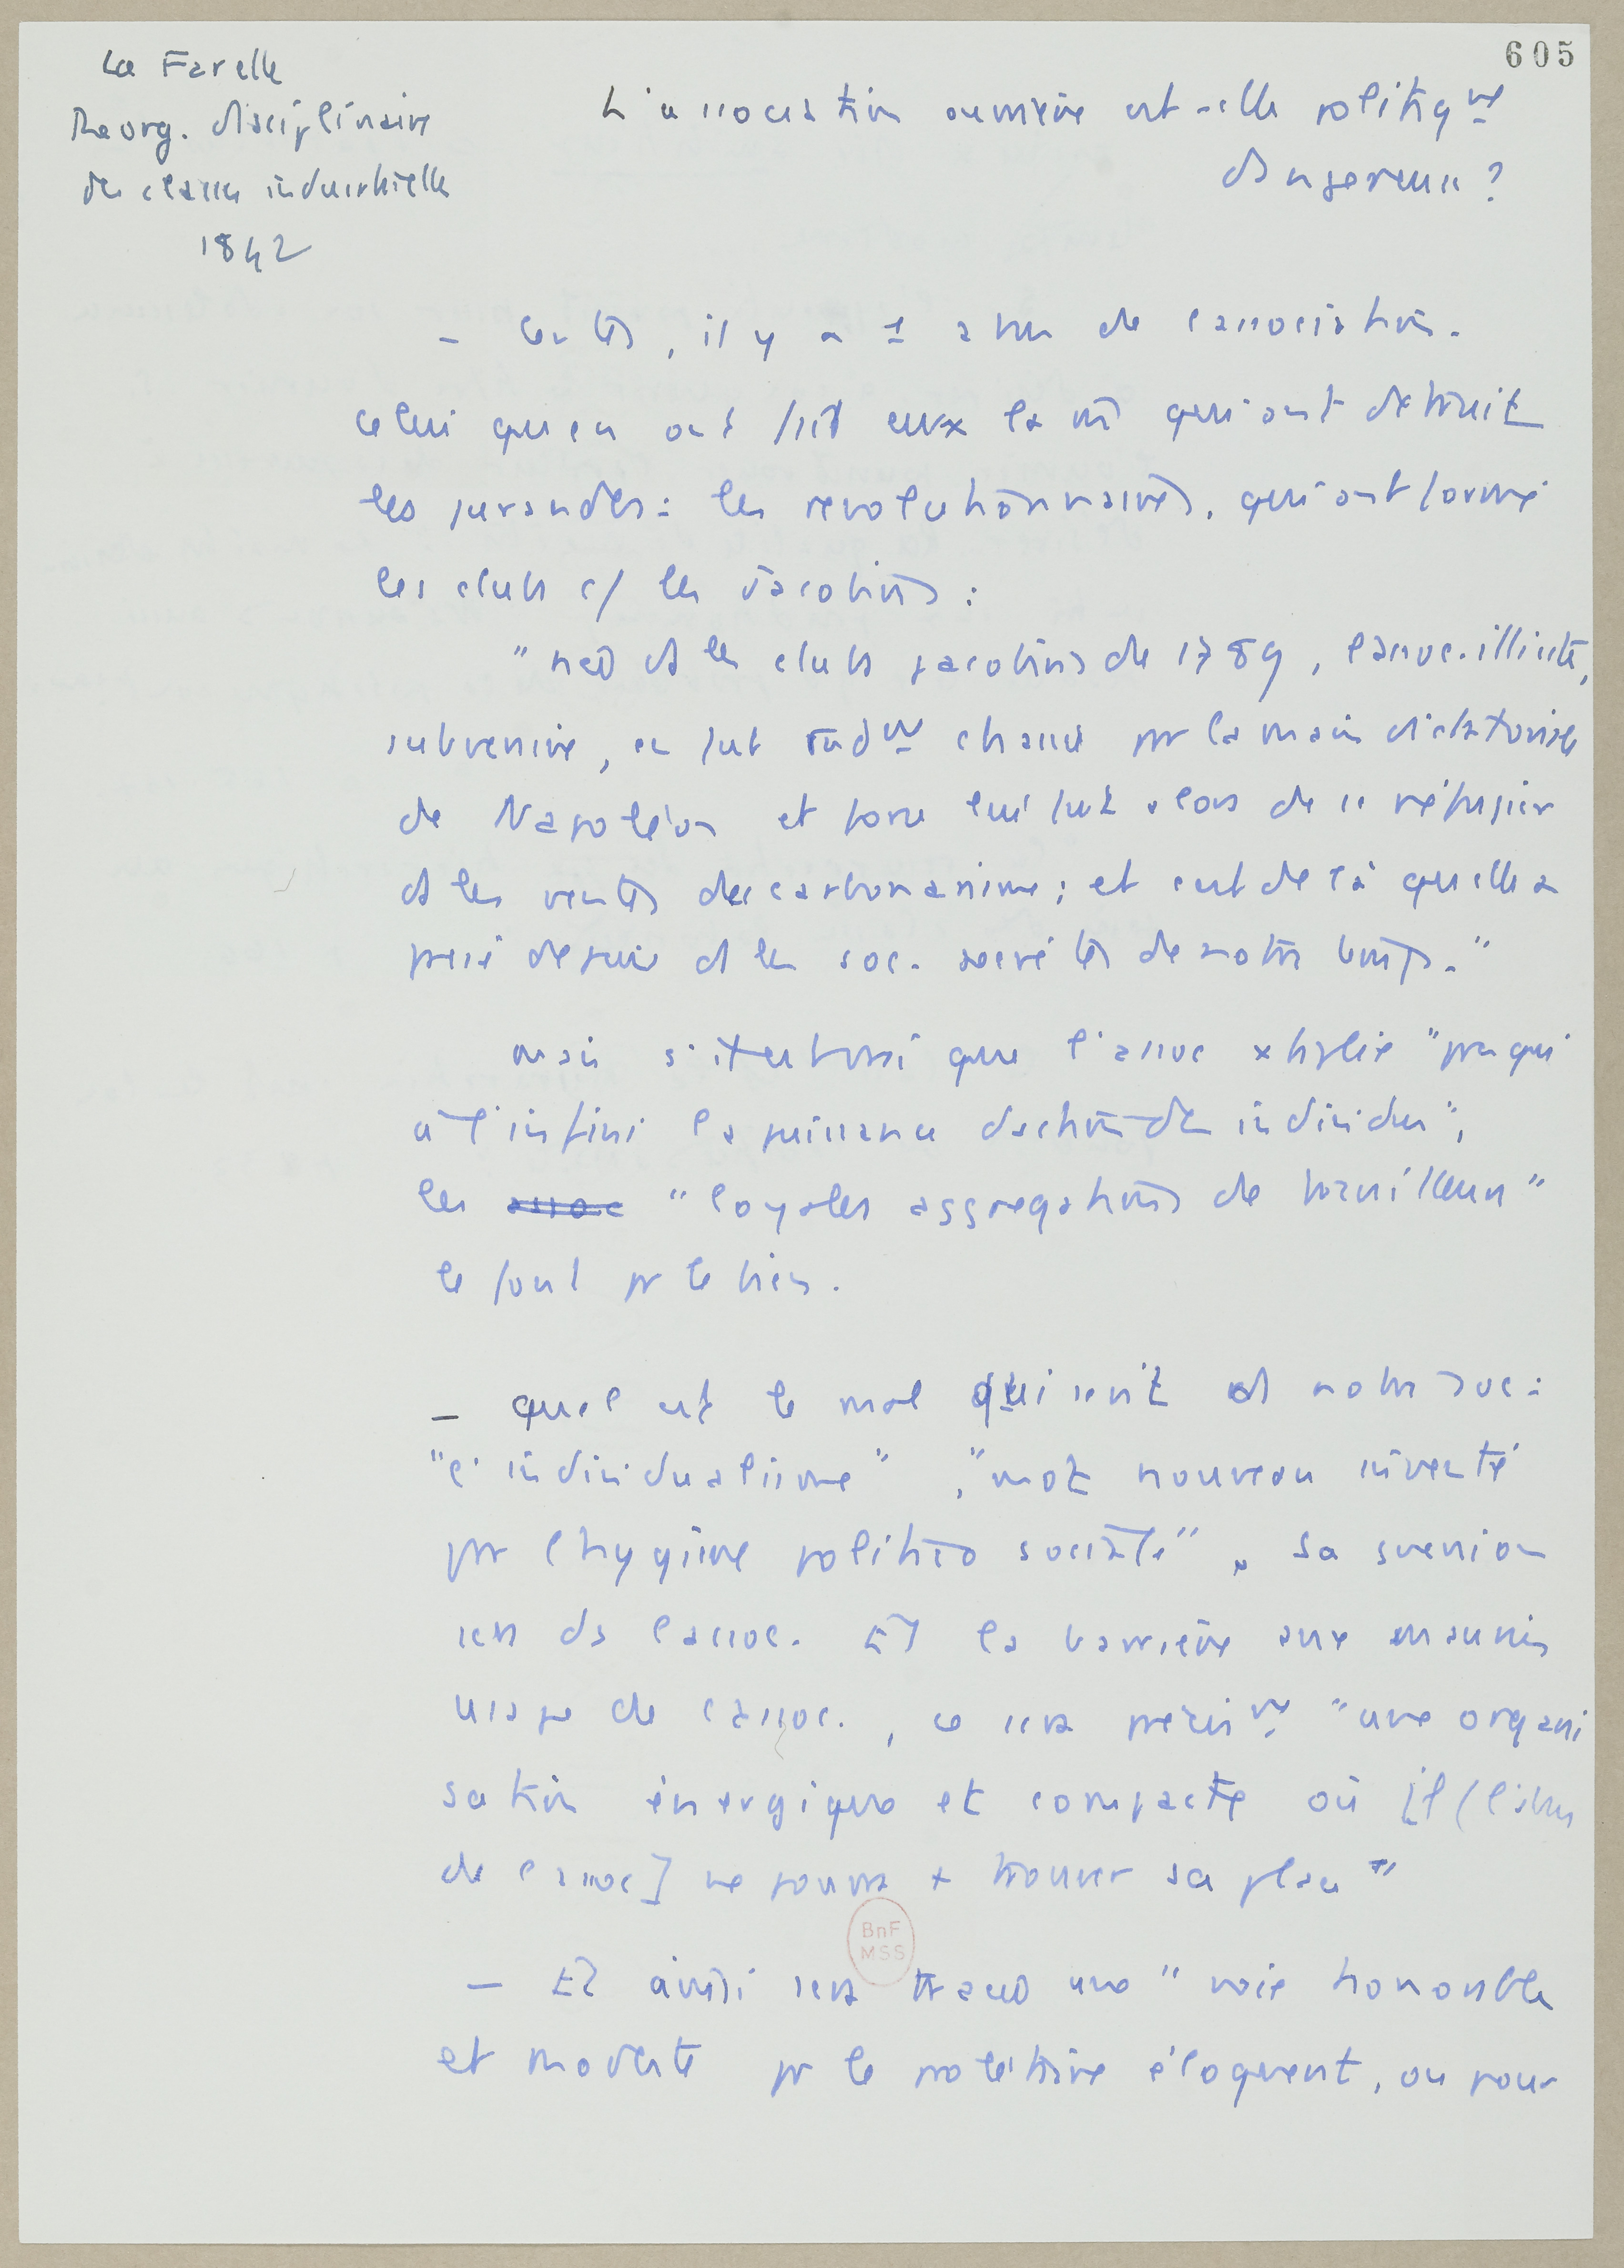 605
La Farelle
Reorg. disciplinaire
des classes industrielles
1842
L'association ouvrière est-elle politiqut
dangereuse ?
- Certes, il y a 1 abus de l'association.
Celui qu'en ont fait ceux là m̂ qui ont détruit
les jurandes : les révolutionnaires, qui ont formé
les clubs c/ les Jacobins :
"née ds les clubs jacobins de 1789, l'assoc. illicite,
subversive, en fut rudt chassée pr la main dictatoriale
de Napoléon et force lui fut alors de se réfugier
ds les ventes du carbonarisme ; et c'est de là qu'elle a
passé depuis ds les soc. secrètes de notre temps."
mais s'il est vrai que l'assoc xtiplie "presqu'
à l'infini la puissance d'action des individus",
les assoc "loyales aggregations de travailleurs"
le font pr le bien.
- quel est le mal qui sévit ds notre soc :
"l'individualisme", "mot nouveau inventé
pr l'hygiène politico sociale". Sa guérison
sera ds l'assoc. Et la barrière aux mauvais
usage de l'assoc., ce sera précist "une organi
sation énergique et compacte où [il (l'abus
de l'assoc] ne pourra + trouver sa place"
- Et ainsi sera tracée une "voie honorable
et modeste pr le prolétaire éloquent, ou pour
BnF
MSS